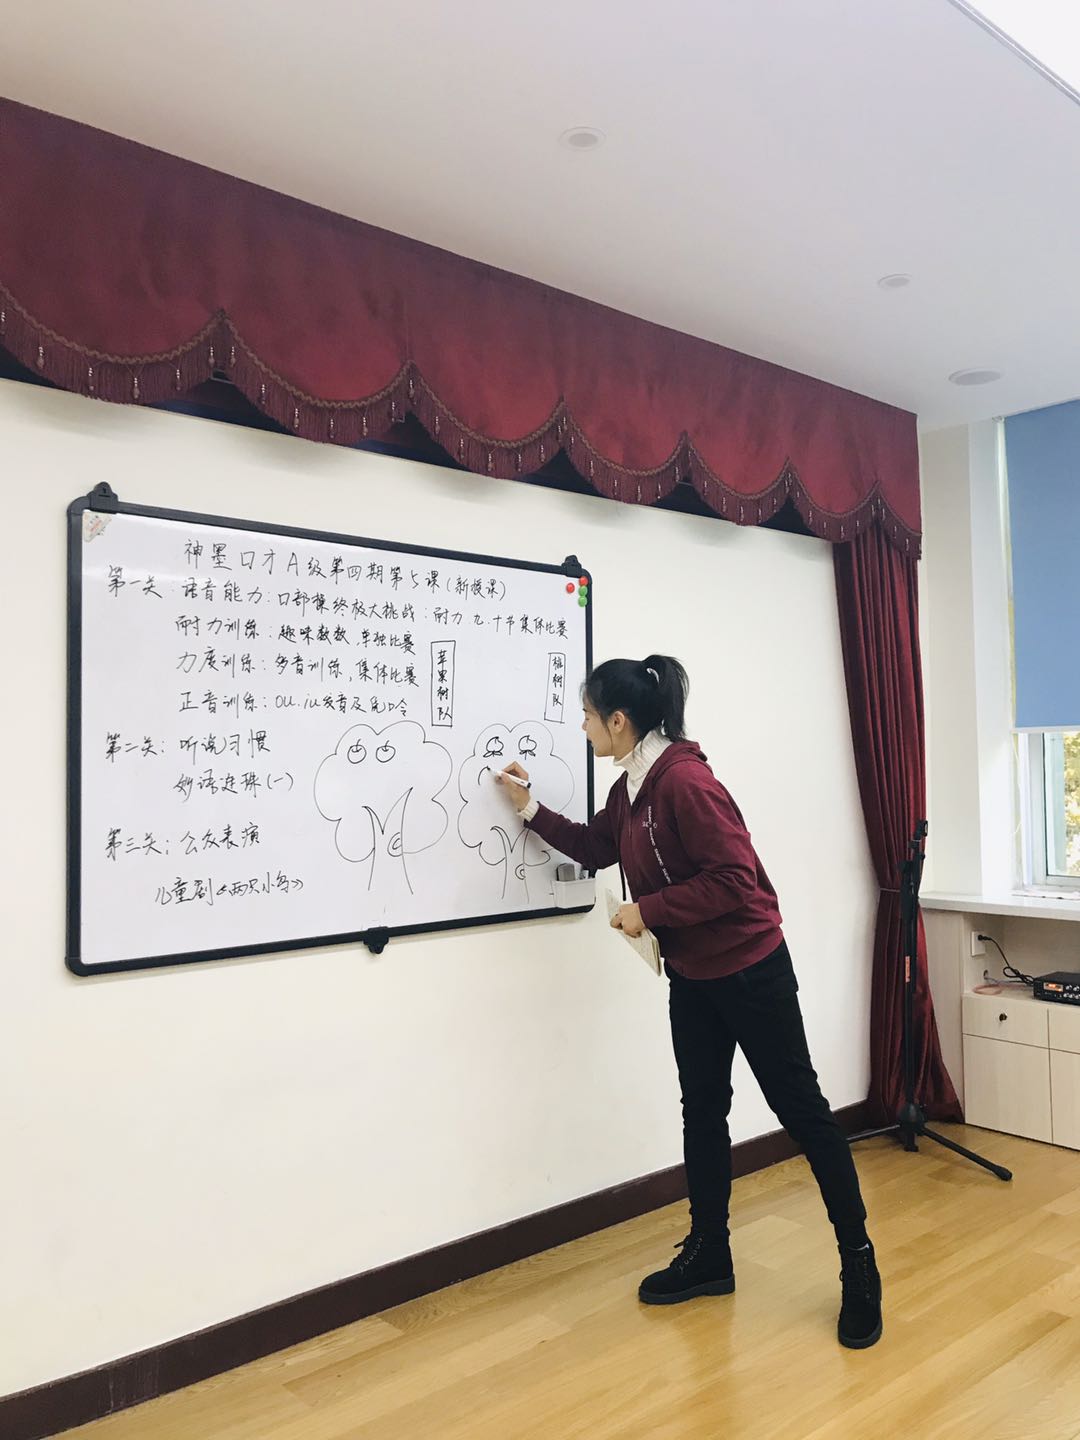 神墨口才A级第四期第5课(新授课)
第一关:语音能力:口部操终极大挑战:耐力九.十节集体比赛
耐力训练:趣味数数,单独比赛
力度训练:多音训练,集体比赛
正音训练:ou.iu发音及绕口令
第二关:听说习惯
妙语连珠(一)
第三关:公众表演
儿童剧《两只小鸟》
苹果树队
桃树队